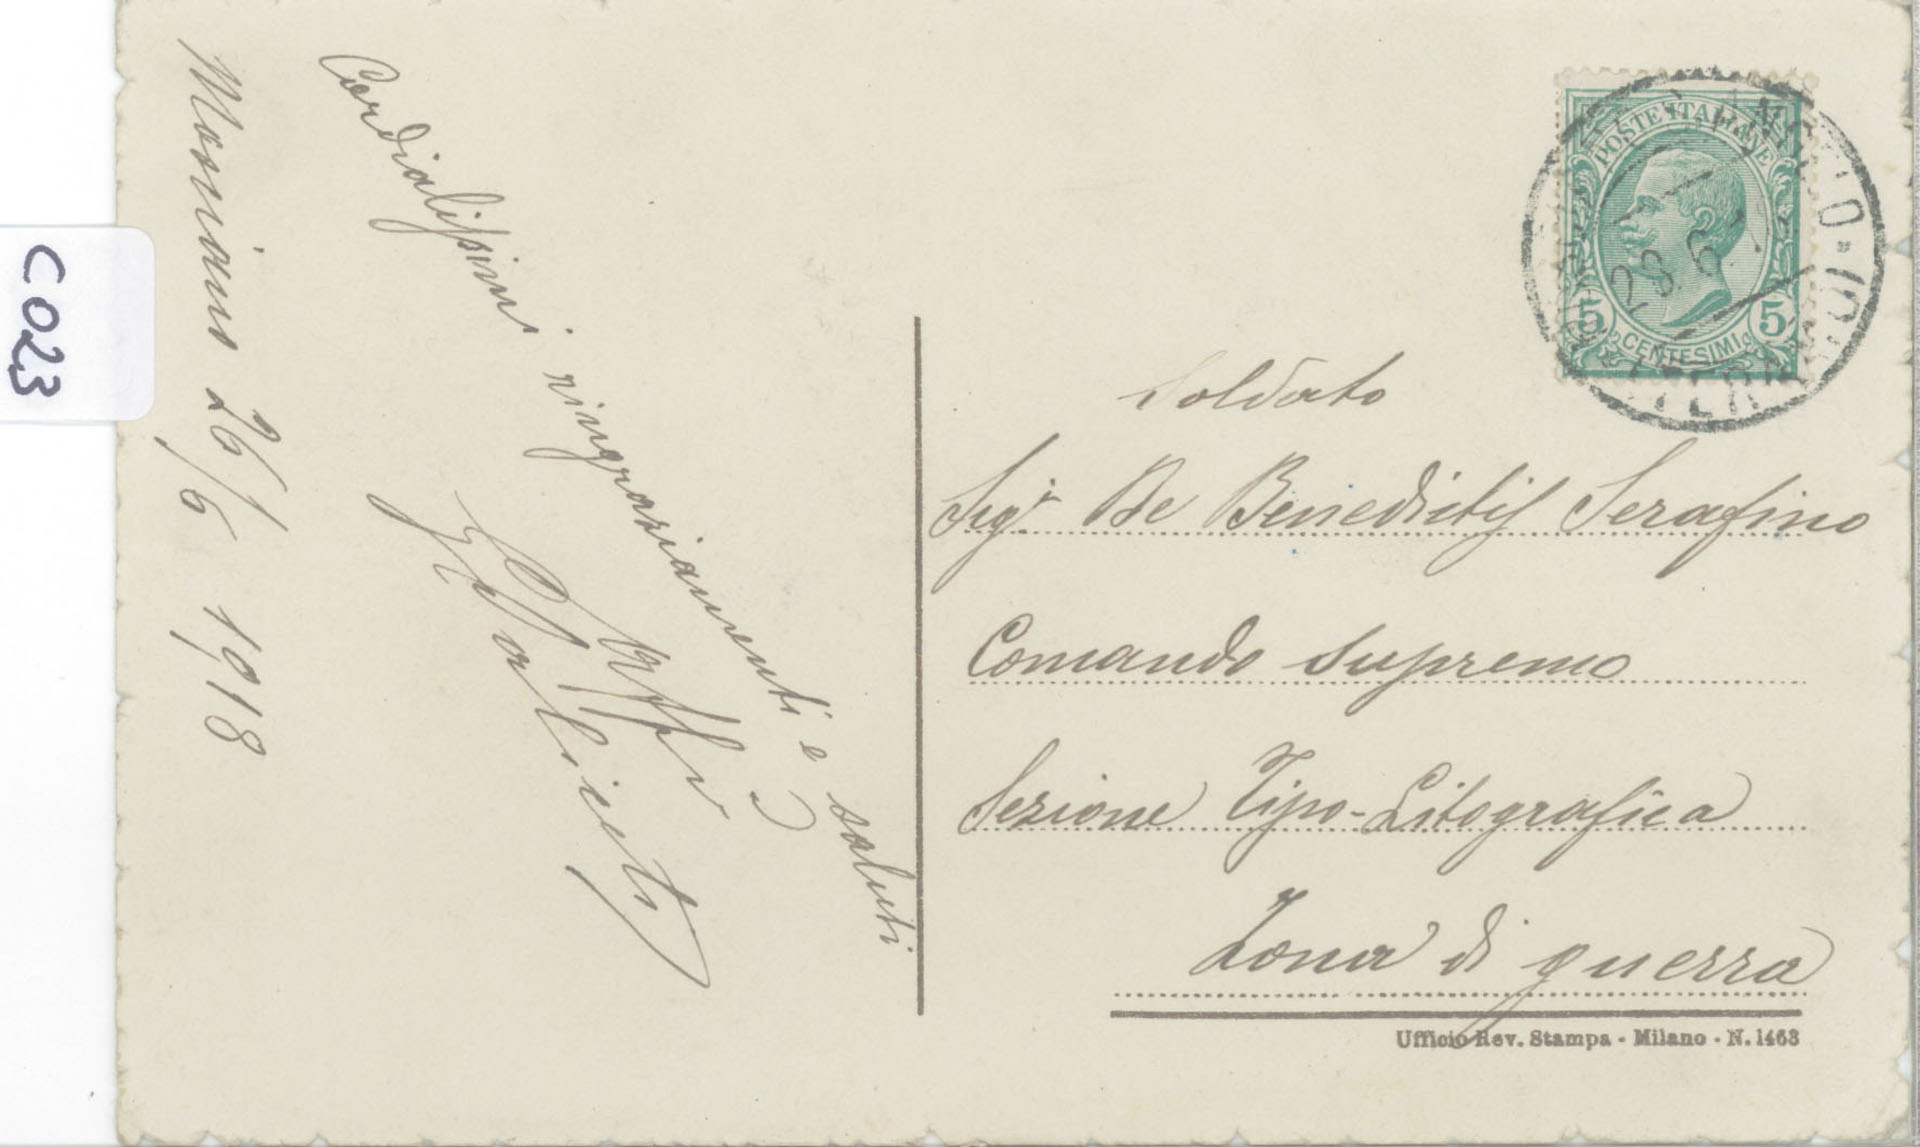 C023
Mosciano 26/6 1918
Cordialissimi ringraziamenti e saluti
Aff.
POSTE ITALIANE
28.6.
5 5
CENTESIMI
Soldato
Sigr De Benedictis Serafino
Comando supremo
Sezione Tipo-Litografica
Zona di guerra
Ufficio Rev. Stampa - Milano - N. 1463